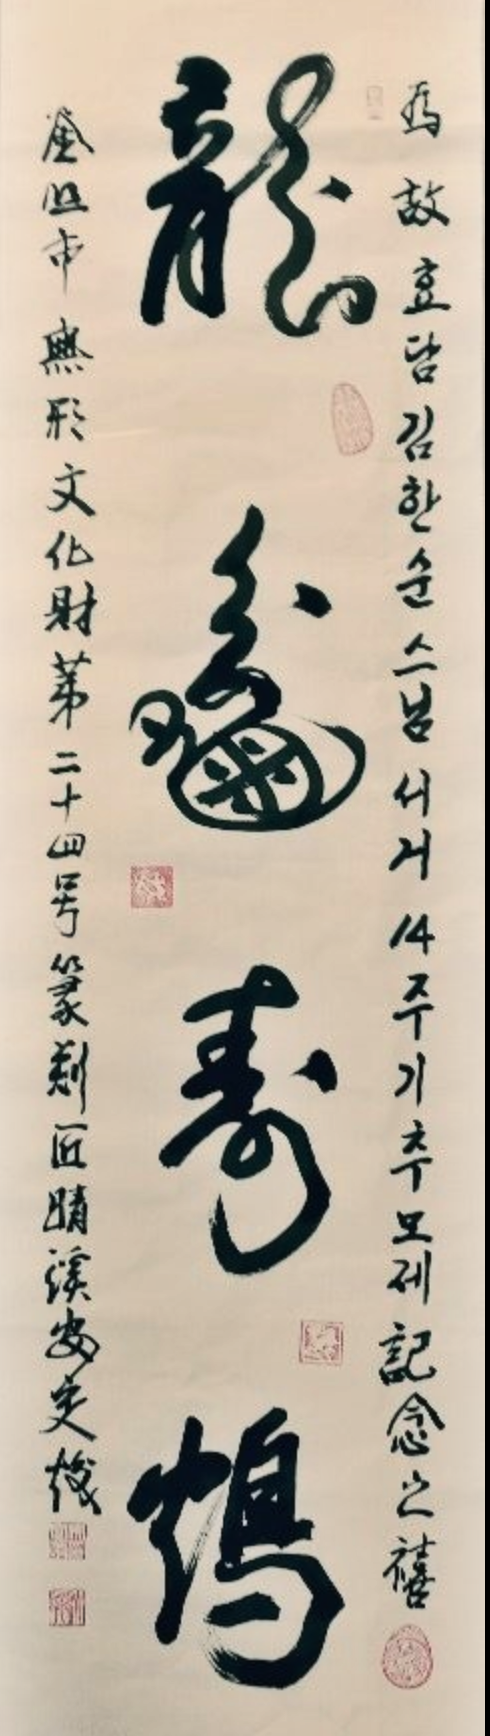 為故효담김한순스님서거14주기추모제記念之禧
龍龜壽鶴
釜山市無形文化財第二十四号篆刻匠晴溪安定煥